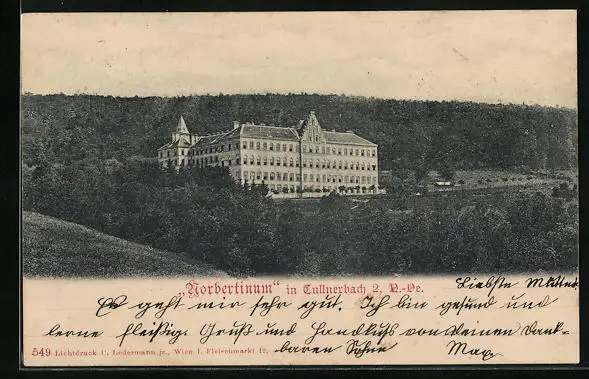 „Norbertinum“ in Tullnerbach 2, N.-Oe.
Liebste Mutter
Es geht mir sehr gut. Ich bin gesund und
lerne fleißig. Gruß und Handkuß von Deinen Dank-
baren Sohne
Max
549 Lichtdruck C. Ledermann jr., Wien I. Fleischmarkt 12.